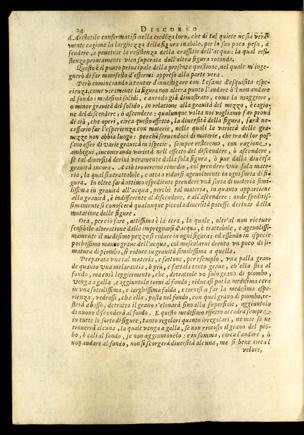 24 DISCORSO
d'Aristotile confermatissi nella credibil loro, che di tal quiete ne sia veramente cagione la larghezza della figura inabile, per lo suo poco peso, a
fendere, e penetrar la resistenza della crassezza dell'acqua: la qual resistenza prontamente vien superata dall'altra figura rotonda.
Questo è il punto principale della presente quistione, nel quale m'ingegnerò di far manifesto d'essermi appreso alla parte vera.
Però cominciando a tentar d'investigare con l'esame d'esquisita esperienza, come veramente la figura non altera punto l'andare, ò 'l non andare
al fondo i medesimi solidi, e avendo già dimostrato, come la maggiore,
ò minor gravità del solido, in relazione alla gravità del mezzo, è cagione del discendere, ò ascendere: qualunque volta noi vogliamo far prova
di ciò, che operi, circa questo effetto, la diversità della figura, sarà necessario far l'esperienza con materie, nelle quali la varietà delle gravezze non abbia luogo; perchè servendoci di materie, che tra di lor possano esser di varie gravità in ispecie, sempre resteremo, con ragione,
ambigui, incontrando varietà nell'effetto del discendere, ò ascendere, se
tal diversità derivi veramente dalla sola figura, ò pur dalla diversa
gravità ancora. A ciò troveremo rimedio, col prendere una sola materia, la qual sia trattabile, e atta a ridursi agevolmente in ogni sorta di figura. In oltre sarà ottimo espediente prendere una sorta di materia similissima in gravità all'acqua, perchè tal materia, in quanto appartiene
alla gravità, è indifferente al discendere, e all'ascendere: onde speditissimamente si conoscerà qualunque piccola diversità potesse derivar dalla
mutazione delle figure.
Ora, per ciò fare, attissima è la cera, la quale, oltr'al non ricever
sensibile alterazione dallo impregnarsi d'acqua, è trattabile, e agevolissimamente il medesimo pezzo si riduce in ogni figura: ed essendo in ispecie
pochissimo manco grave dell'acqua, col mescolarvi drento un poco di limatura di piombo, si riduce in gravità similissima a quella.
Preparata una tal materia, e, fattone, per esempio, una palla grande quanto una melarancia, ò più, e fattala tanto grave, ch'ella stia al
fondo, ma così leggiermente, che, detrattole un solo grano di piombo,
venga a galla, e aggiuntolo torni al fondo; riducasi poi la medesima cera
in una sottilissima, e larghissima falda, e tornisi a far la medesima esperienza, vedrassi, che ella, posta nel fondo, con quel grano di piombo, resterà a basso, detratto il grano s'eleverà sino alla superficie, aggiuntolo
di nuovo discenderà al fondo. E questo medesimo effetto accaderà sempre
in tutte le sorte di figure, tanto regolari quanto irregolari, ne mai se ne
troverrà alcuna, la quale venga a galla, se non rimosso il grano del piombo, ò cali al fondo, se non aggiuntovelo: e in somma, circa l'andare, ò
non andare al fondo, non si scorgerà diversità alcuna, ma sì bene circa 'l
veloce,